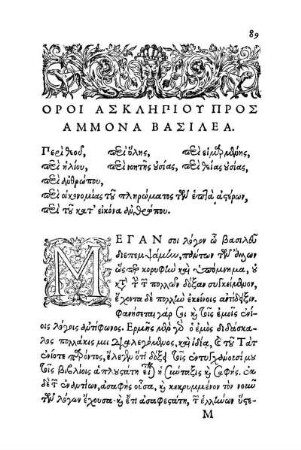 89
ΟΡΟΙ ΑΣΚΛΗΠΙΟΥ ΠΡΟΣ
ΑΜΜΟΝΑ ΒΑΣΙΛΕΑ.
Περὶ θεοῦ, περὶ ὕλης, περὶ εἱμαρμένης,
περὶ ἡλίου, περὶ νοητῆς οὐσίας, περὶ θείας οὐσίας,
περὶ ἀνθρώπου,
περὶ οἰκονομίας τοῦ πληρώματος τῶν ἑπτὰ ἀστέρων,
περὶ τοῦ κατ' εἰκόνα ἀνθρώπου.
ΜΕΓΑΝ σοι λόγον ὦ βασιλεῦ
διεπεμψάμην, πάντων τῶν ἄλλων
ὥσπερ κορυφὴν καὶ ὑπόμνημα, οὐ
κατὰ τὴν τῶν πολλῶν δόξαν συγκείμενον,
ἔχοντα δὲ πολλὴν ἐκείνοις ἀντίδειξιν.
Φανήσεται γάρ σοι καὶ τοῖς ἐμοῖς ἐνίοις
λόγοις ἀντίφωνος. Ἑρμῆς μὲν γὰρ ὁ ἐμὸς διδάσκαλος
πολλάκις μοι διαλεγόμενος, καὶ ἰδίᾳ, καὶ τοῦ Τὰτ
ἐνίοτε παρόντος, ἔλεγεν ὅτι δόξει τοῖς ἐντυγχάνουσί μου
τοῖς βιβλίοις ἁπλουστάτη εἶναι ἡ σύνταξις καὶ σαφής. ἐκ
δὲ τῶν ἐναντίων, ἀσαφὴς οὖσα, καὶ κεκρυμμένον τὸν νοῦν
τῶν λόγων ἔχουσα· καὶ ἔτι ἀσαφεστάτη, τῶν ἑλλήνων ὕστε-
Μ